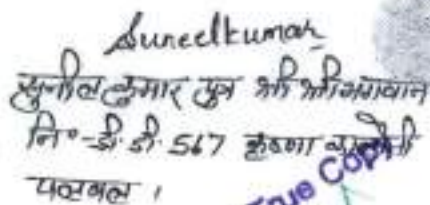 Suneelkumar
सुनील कुमार पुत्र श्री श्रीभगवान
नि०-डी.डी. 567 कृष्णा कालोनी
पलवल ।
True Copy